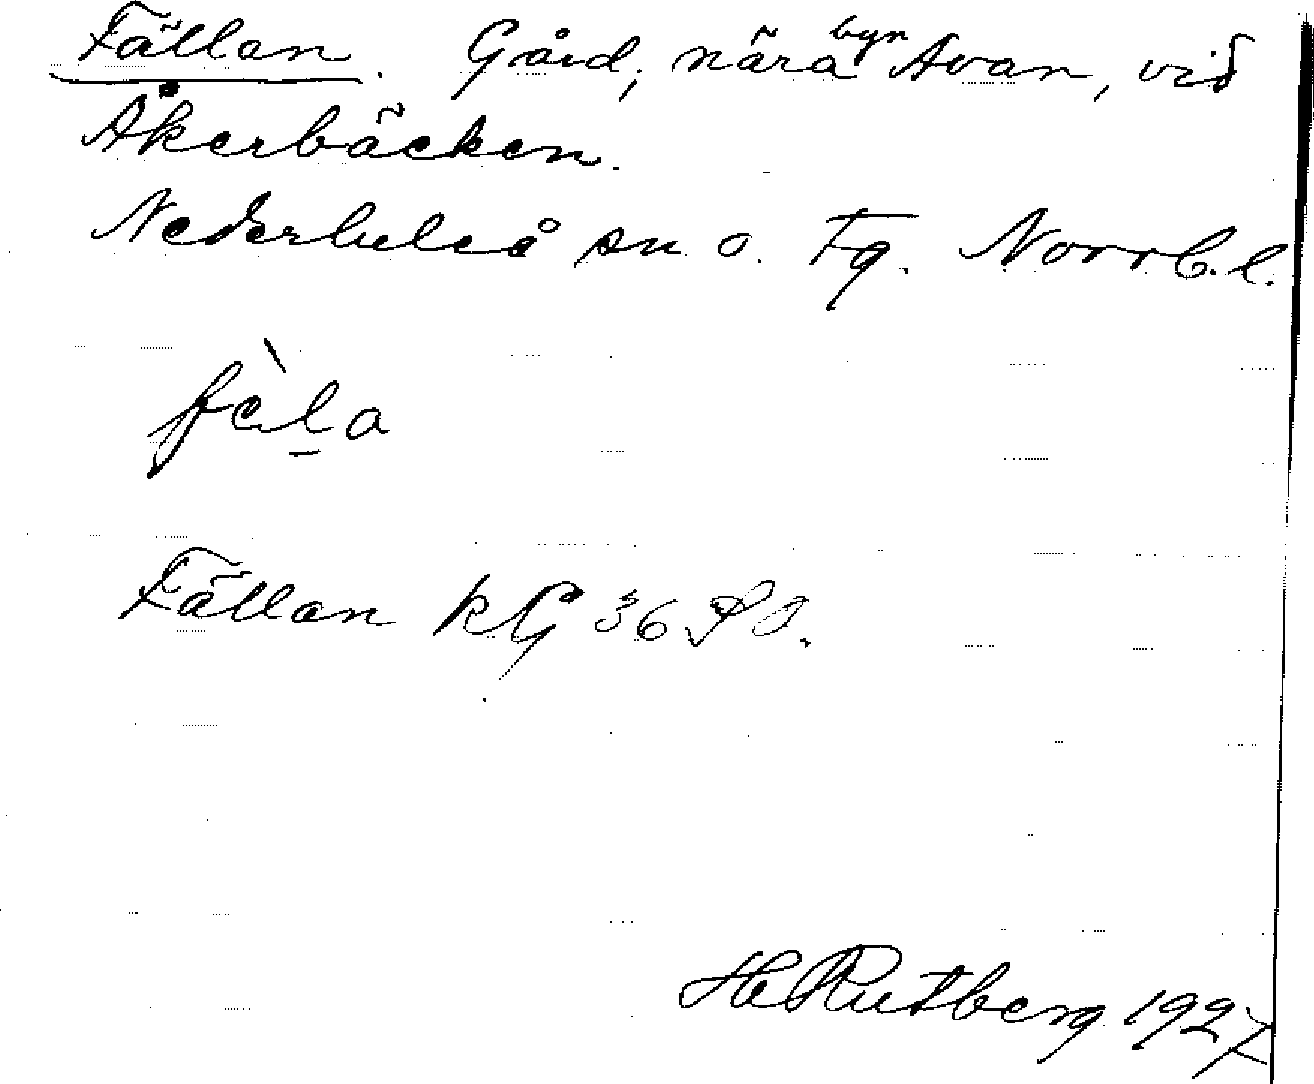 Fällan. Gård, nära byn Avan, vid
Åkerbäcken.
Nederluleå sn o. Tg. Norrb. l.
fὲla
Fällan kG 36 SO.
H Rutberg 1927